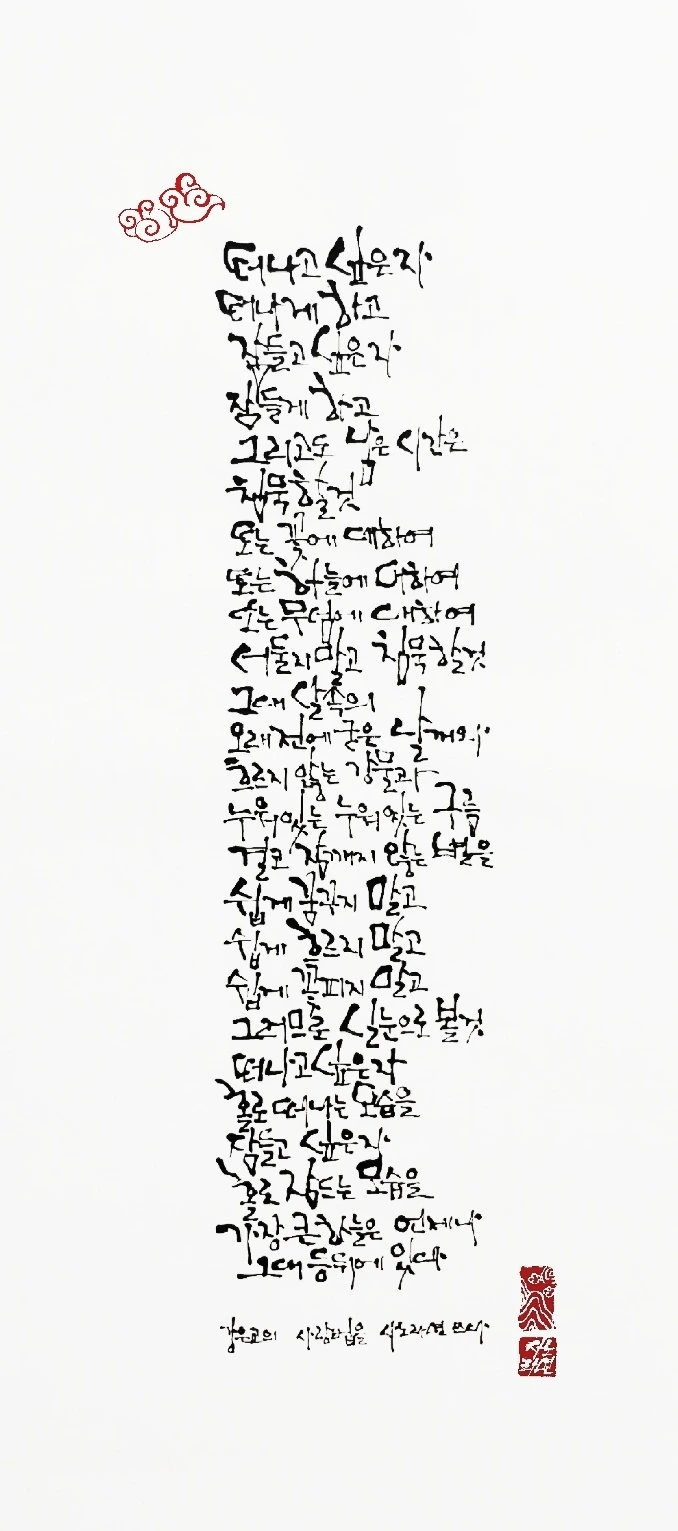 떠나고 싶은 자
떠나게 하고
잠들고 싶은 자
잠들게 하고
그리고도 남은 시간은
침묵할 것
또는 꽃에 대하여
또는 하늘에 대하여
또는 무덤에 대하여
서둘지 말고 침묵할 것
그대 살 속의
오래전에 굳은 날개와
흐르지 않는 강물과
누워있는 누워있는 구름
결코 잠깨지 않는 별을
쉽게 꿈꾸지 말고
쉽게 흐르지 말고
쉽게 꽃피지 말고
그러므로 실눈으로 볼 것
떠나고 싶은 자
홀로 떠나는 모습을
잠들고 싶은 자
홀로 잠드는 모습을
가장 큰 하늘은 언제나
그대 등 뒤에 있다
강은교의 사랑법을 쓰다